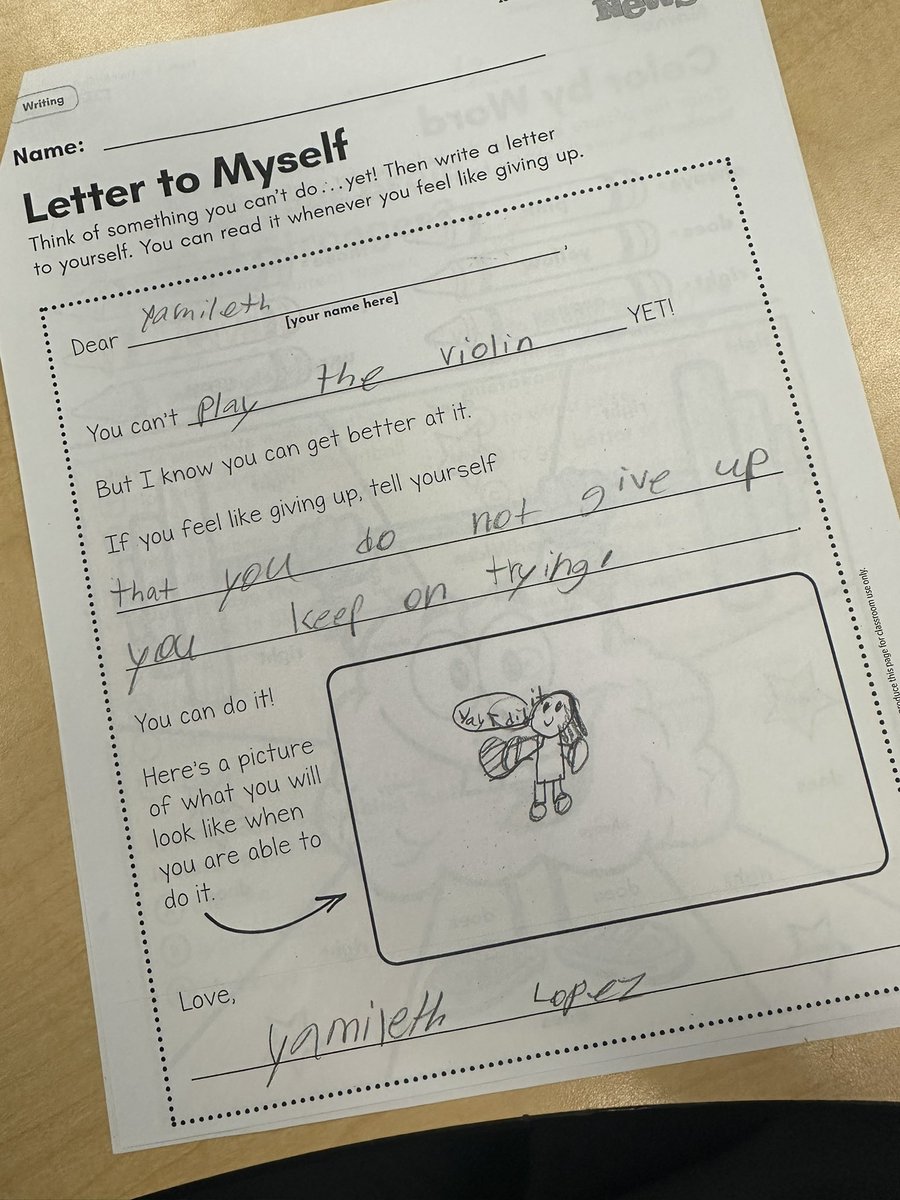 News
Writing
Name:
Letter to Myself
Think of something you can't do...yet! Then write a letter
to yourself. You can read it whenever you feel like giving up.
Dear Yamileth,
[your name here]
You can't play the violin YET!
But I know you can get better at it.
If you feel like giving up, tell yourself
that you do not give up
you keep on trying!.
You can do it!
Here's a picture
of what you will
look like when
you are able to
do it.
Yay I did it
Love,
Yamileth Lopez
produce this page for classroom use only.
Color by Word